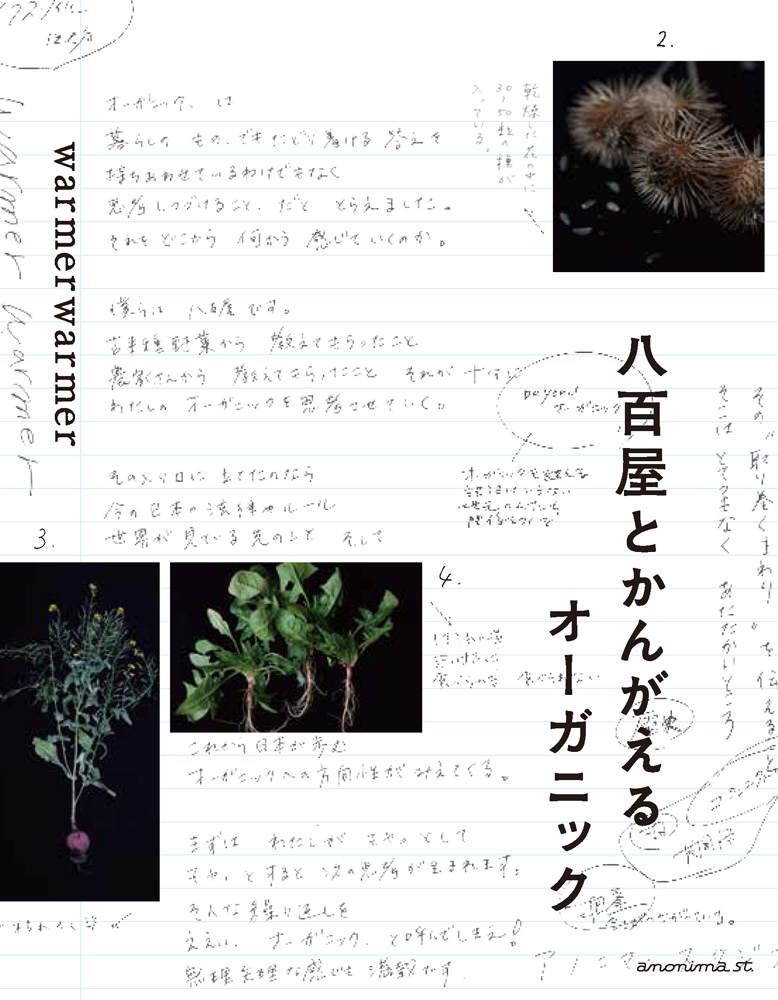 2.
乾燥した花の中に
30〜50粒の種が
入っている。
オーガニック、は
暮らしの もの、でもたどり着ける 答えを
持ちあわせているわけでもなく
思考しつづけること、だと とらえました。
それを どこから 何から 感じていくのか。
僕らは 八百屋です。
古来種野菜から 教えてもらったこと
農家さんから 教えてもらったこと それが 十分に
わたしの オーガニックを思考させていく。
その入り口に 立てたのなら
今の日本の法律やルール
世界が見ている先のこと そして
これから日本が歩む
オーガニックへの方向性が みえてくる。
まずは わたしが もや。として
もや。とすると 次の思考が生まれます。
そんな繰り返しを
ええい、オーガニック、と呼んでしまえ!
無理矢理な感じも 満載です。
warmer warmer
warmerwarmer
八百屋とかんがえる
オーガニック
beyond
オーガニック
その“取り巻くまわり”を伝えると
そこは とてつもなく あたたかいところ
3.
4.
食べられる 食べられない
共同
anonima st.